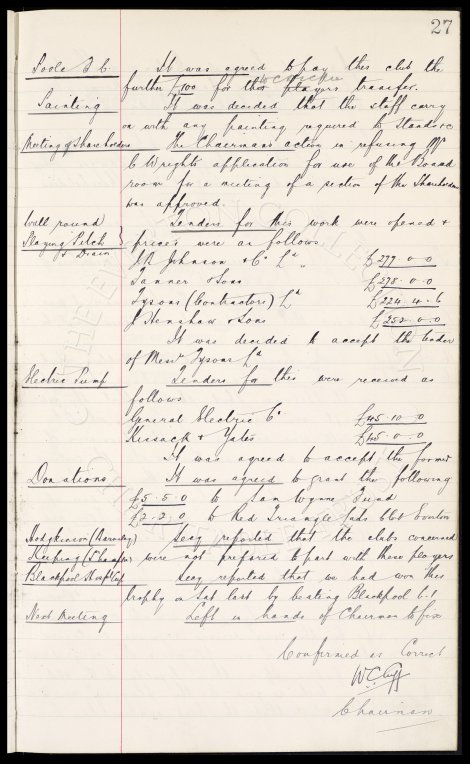 27
Poole F.C. It was agreed to pay this club the
further £100 for this players transfer.
McGuckin
Painting It was decided that the staff carry
on with any painting required to Stands &c
Meeting of Shareholders The Chairmans action in refusing Mr
C Wrights application for use of the Board
room for a meeting of a section of the Shareholders
was approved.
Wall round Tenders for this work were opened &
Playing Pitch } prices were as follows
& Drain
J.R. Johnson & Co Ld " £277.0.0
Tanner & Sons £278.0.0
Tysons (Contractors) Ld £224.4.6
J Henshaw & Sons £252.0.0
It was decided to accept the tender
of Messrs Tysons Ld
Electric Pump Tenders for this were received as
follows
General Electric Co £45.10.0
Kusack & Yates £45.0.0
It was agreed to accept the former
Donations It was agreed to grant the following
£5.5.0 to Sam Wynne Fund
£2.2.0 to Red Triangle Lads Club Everton
Hodgkinson (Barnsley) Secy reported that the clubs concerned
Keeping (S'hampton) were not prepared to part with these players
Blackpool Hosp Cup Secy reported that we had won this
trophy on Sat last by beating Blackpool 6!1
Next Meeting Left in hands of Chairman to fix
Confirmed as Correct
W.C. Cuff
Chairman